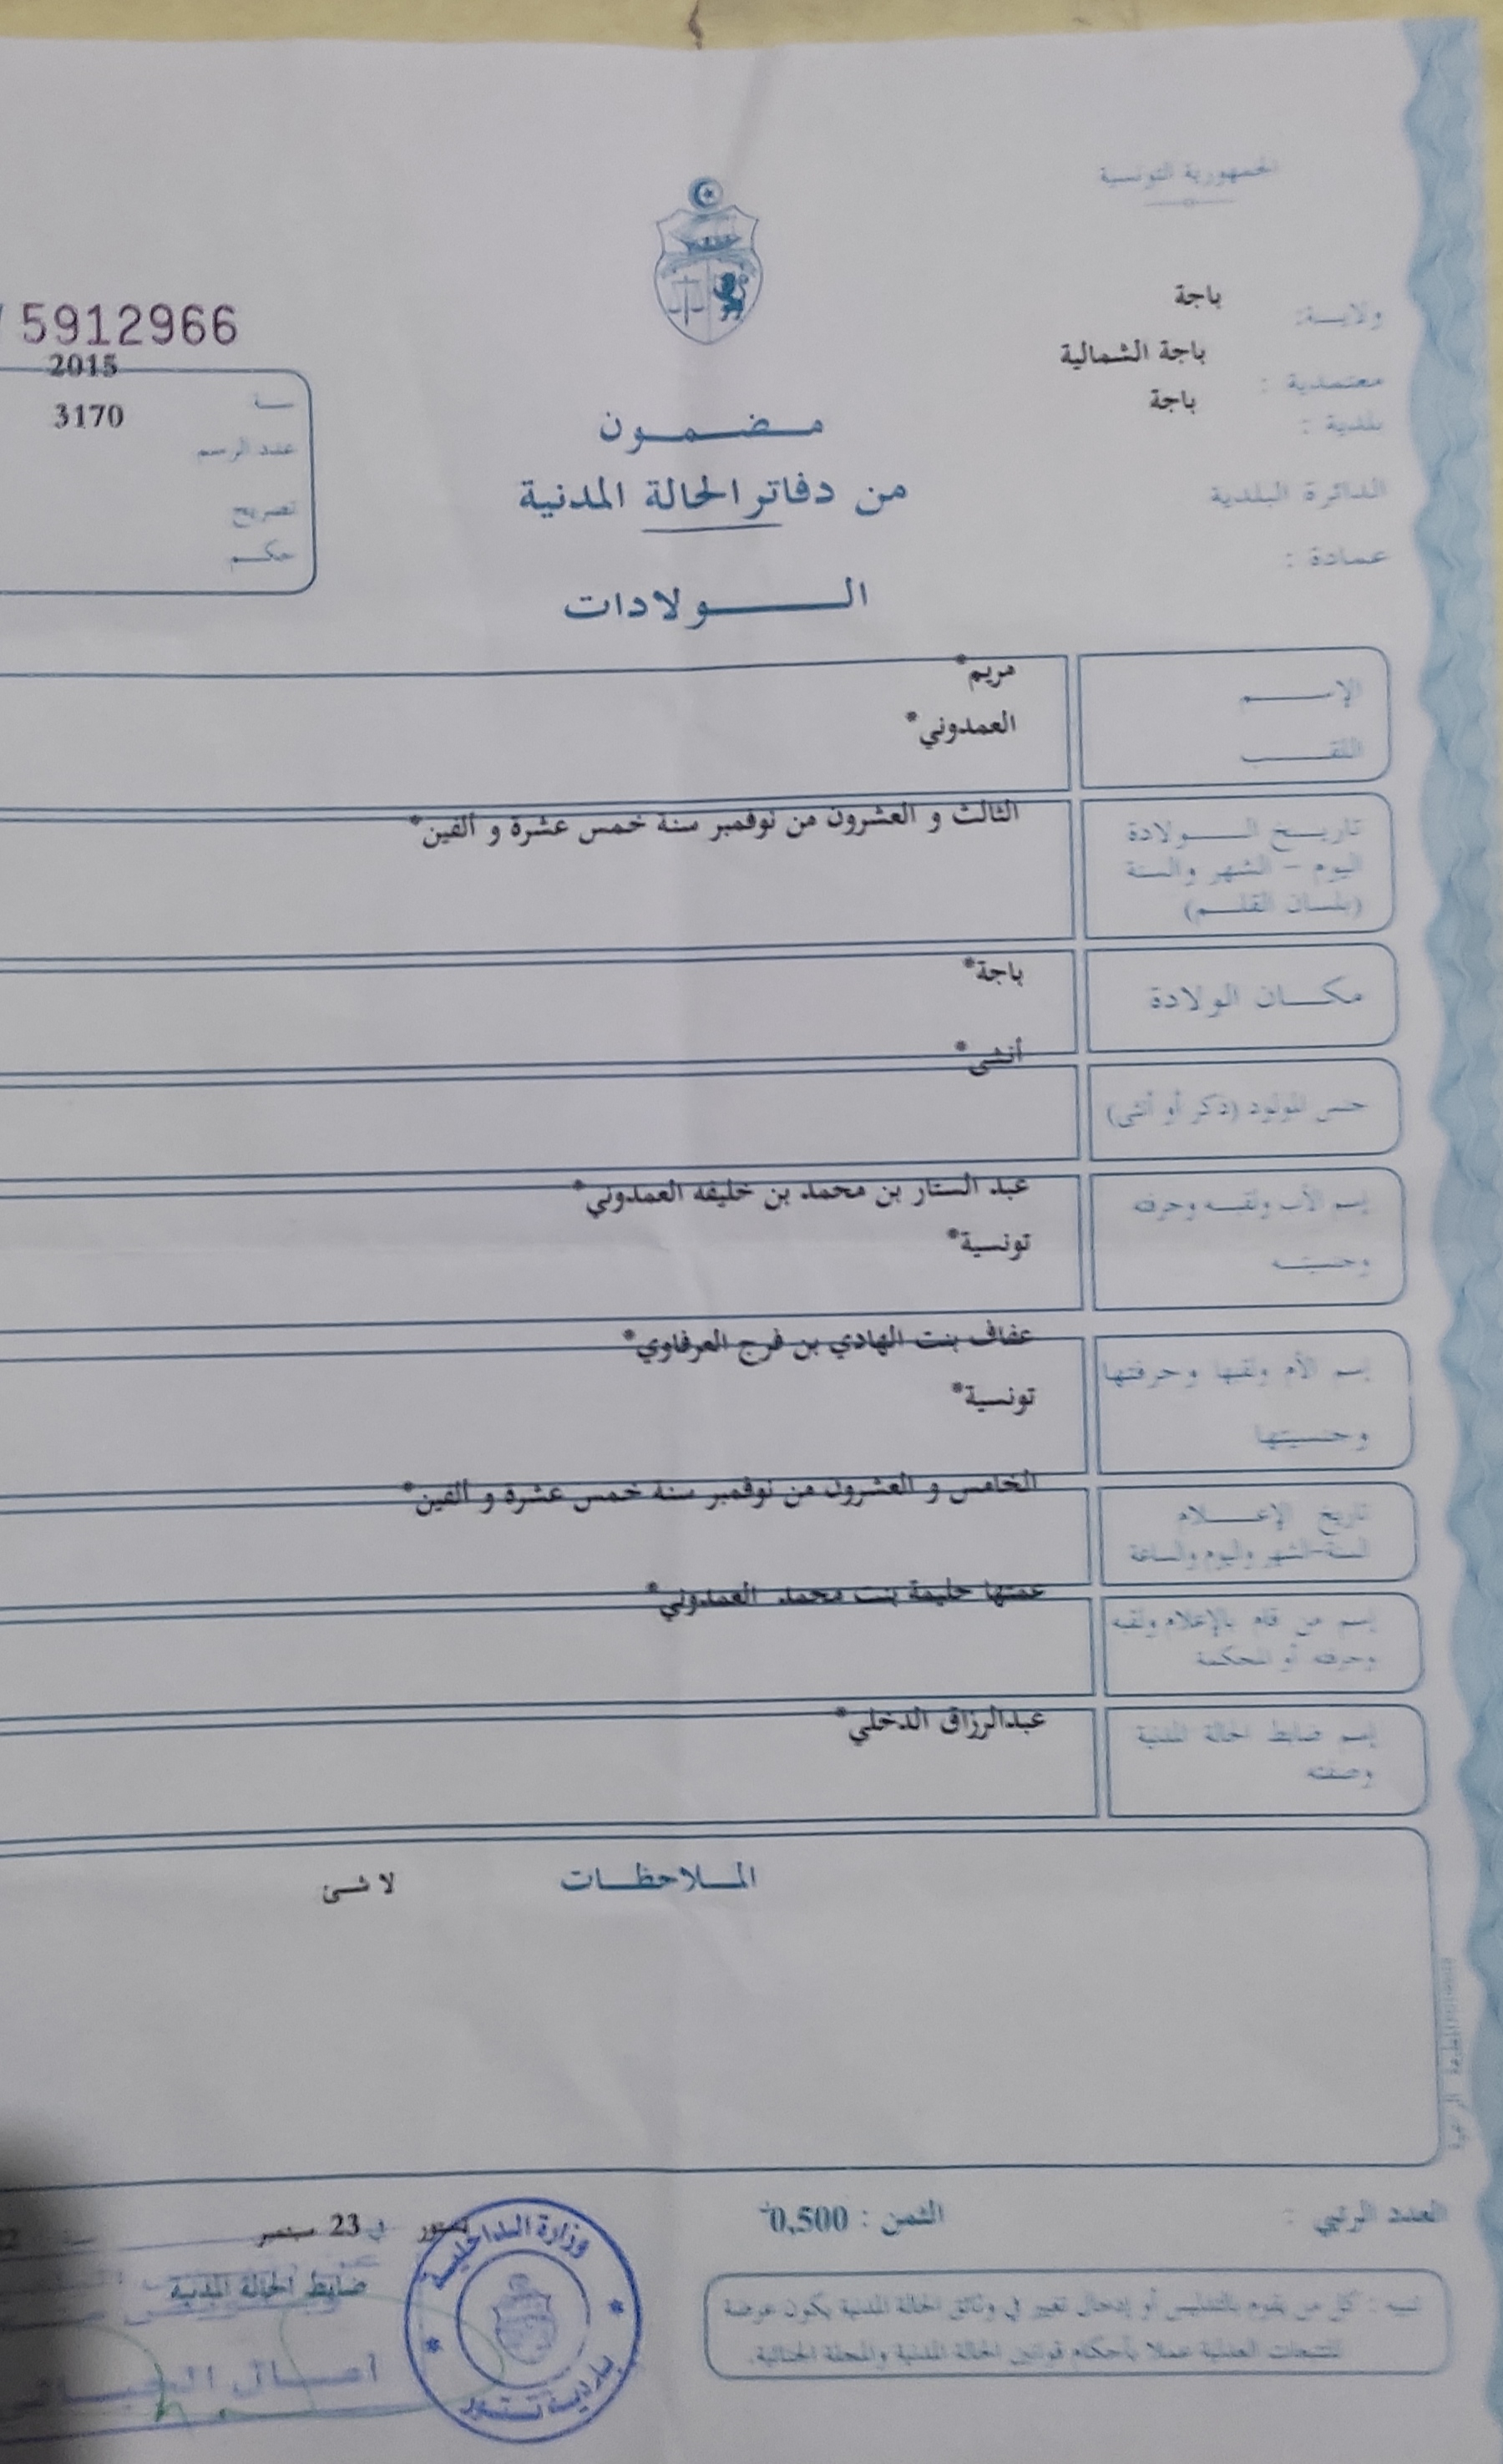 الجمهورية التونسية
ولاية: باجة
معتمدية : باجة الشمالية
بلدية : باجة
الدائرة البلدية
عمادة :
5912966
2015
3170
عدد الرسم
تصريح
حكم
مضمون
من دفاتر الحالة المدنية
الولادات
الإسم مريم*
اللقب العمدوني*
تاريخ الولادة الثالث و العشرون من نوفمبر سنة خمس عشرة و ألفين*
اليوم - الشهر والسنة
(بلسان القلم)
مكان الولادة باجة*
أنثى*
جنس المولود (ذكر أو أنثى)
إسم الأب ولقبه وحرفته عبد الستار بن محمد بن خليفه العمدوني*
وجنسيته تونسية*
إسم الأم ولقبها وحرفتها عفاف بنت الهادي بن فرج العرفاوي*
وجنسيتها تونسية*
تاريخ الإعلام الخامس و العشرون من نوفمبر سنة خمس عشرة و ألفين*
السنة-الشهر واليوم والساعة
إسم من قام بالإعلام ولقبه عمتها حليمة بنت محمد العمدوني*
وحرفته أو المحكمة
إسم ضابط الحالة المدنية عبدالرزاق الدخلي*
وصفته
الملاحظات لا شئ
العدد الرتبي :
الثمن : 0,500
تستور في 23 سبتمبر
ضابط الحالة المدنية
وزارة الداخلية
بلدية تستور
تنبيه : كل من يقوم بالتدليس أو إدخال تغيير في وثائق الحالة المدنية يكون عرضة
للتتبعات العدلية عملا بأحكام قوانين الحالة المدنية والمجلة الجنائية.